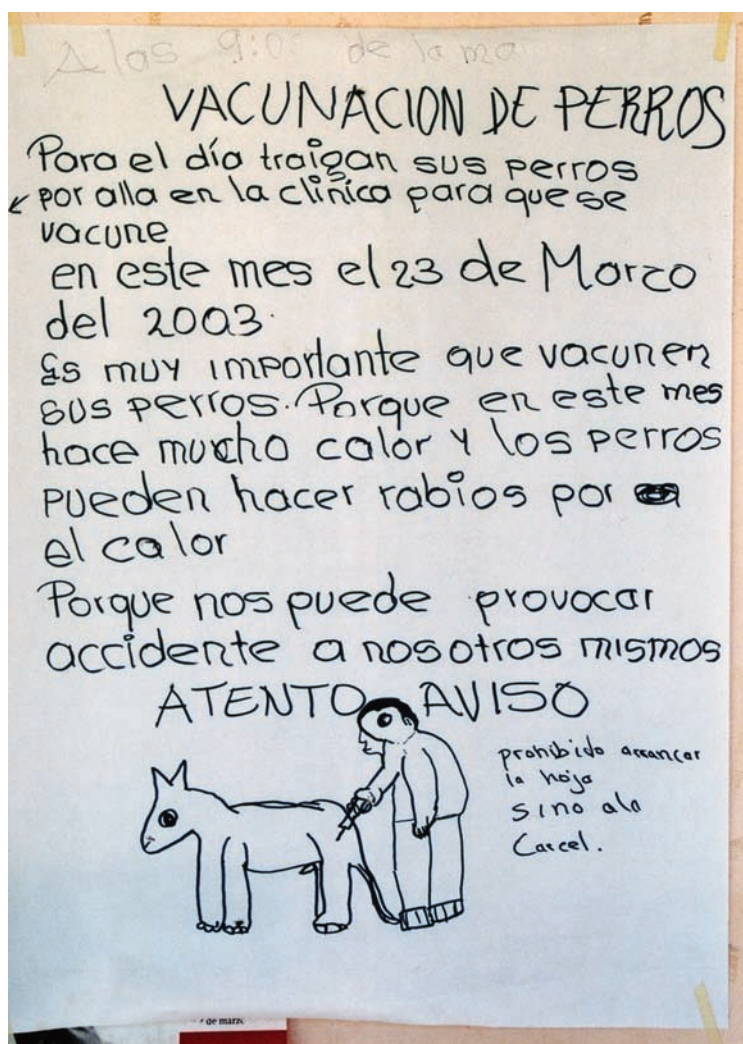 A las 9:0 de la ma
VACUNACION DE PERROS
Para el día traigan sus perros
por alla en la clínica para que se
vacune
en este mes el 23 de Marzo
del 2003.
Es muy importante que vacunen
sus perros. Porque en este mes
hace mucho calor y los perros
pueden hacer rabios por
el calor
Porque nos puede provocar
accidente a nosotros mismos
ATENTO AVISO
prohibido arrancar
la hoja
sino ala
Carcel.
de marzo